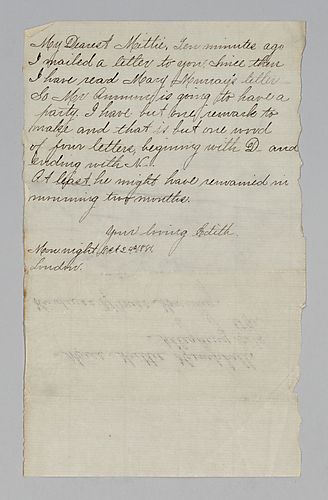 My Dearest Mattie, Ten minutes ago
I mailed a letter to you. Since then
I have read Mary Murray's letter
So Mr. is going to have a
party. I have but one remark to
make and that is but one word
of four letters, begining with D and
ending with N.
At least he might have remained in
mourning two months.
Your loving Edith.
Mon night, Oct 24th
London.